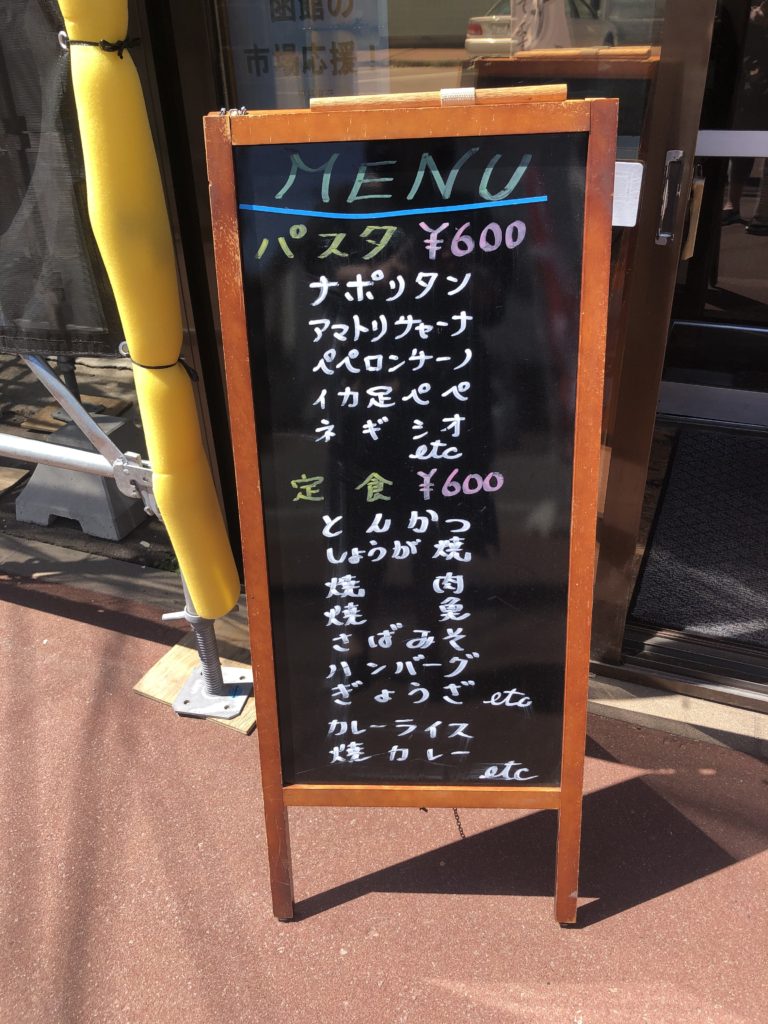 函館の
市場応援!
MENU
パスタ ¥600
ナポリタン
アマトリチャーナ
ペペロンチーノ
イカ足ペペ
ネギシオ
etc
定食 ¥600
とんかつ
しょうが焼
焼肉
焼魚
さばみそ
ハンバーグ
ぎょうざ etc
カレーライス
焼カレー
etc